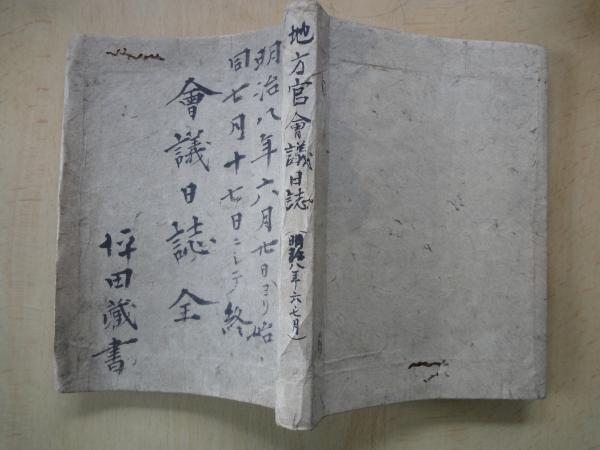 地方官會議日誌(明治八年六七月)
明治八年六月廿日ヨリ始
同七月十七日ニシテ終
會議日誌 全
坪田藏書